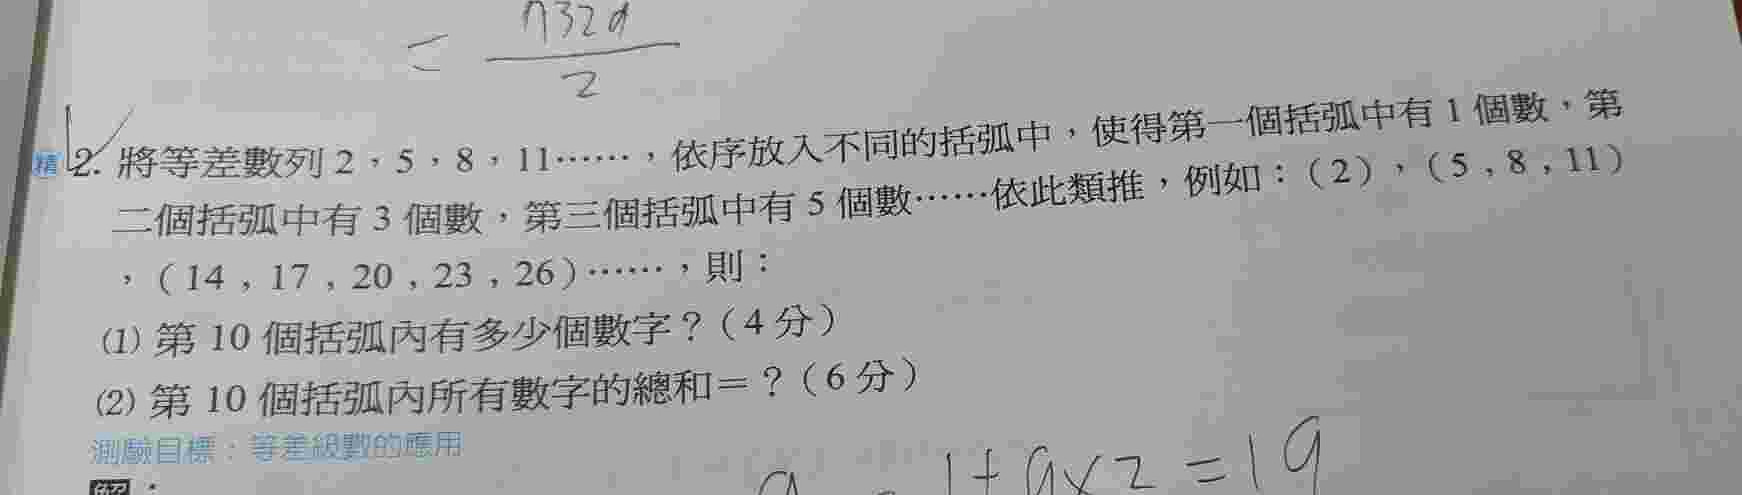 = n32d
2
精 2. 將等差數列 2，5，8，11……，依序放入不同的括弧中，使得第一個括弧中有 1 個數，第
二個括弧中有 3 個數，第三個括弧中有 5 個數……依此類推，例如：（2），（5 , 8 , 11）
，（14 , 17 , 20 , 23 , 26）……，則：
(1) 第 10 個括弧內有多少個數字？（4 分）
(2) 第 10 個括弧內所有數字的總和＝？（6 分）
測驗目標：等差級數的應用
解：
1+9×2=19